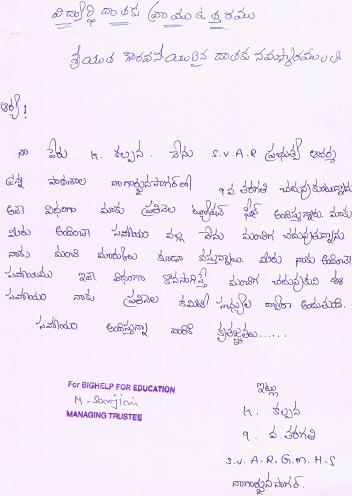 విద్యార్థి దాతకు వ్రాయు ఉత్తరము
శ్రీయుత గౌరవనీయులైన దాతకు నమస్కారములు
ఆర్యా!
నా పేరు K. కల్పన. నేను S.V.A.R ప్రభుత్వ ఆదర్శ
ఉన్నత పాఠశాల నాగార్జునసాగర్‌లో 9 వ తరగతి చదువుకుంటున్నాను
అదే విధంగా మాకు ప్రతినెల ట్యూషన్ ఫీజు అందిస్తున్నారు. మాకు
మీరు అందించే సహాయం వల్ల నేను మంచిగా చదువుకుంటున్నాను
నాకు మంచి మార్కులు కూడా వస్తున్నాయి. మీరు నాకు అందించే
సహాయము ఇదే విధంగా కొనసాగిస్తే మంచిగా చదువుకుని ఈ
సహాయం నాకు ప్రతినెల కమిటీ సభ్యుల ద్వారా అందుతుంది.
సహాయం అందిస్తున్నా వారికి కృతజ్ఞతలు......
For BIGHELP FOR EDUCATION
M. Sarojini
MANAGING TRUSTEE
ఇట్లు
K. కల్పన
9. వ. తరగతి
S.V.A.R.G.M.H.S
నాగార్జునసాగర్.